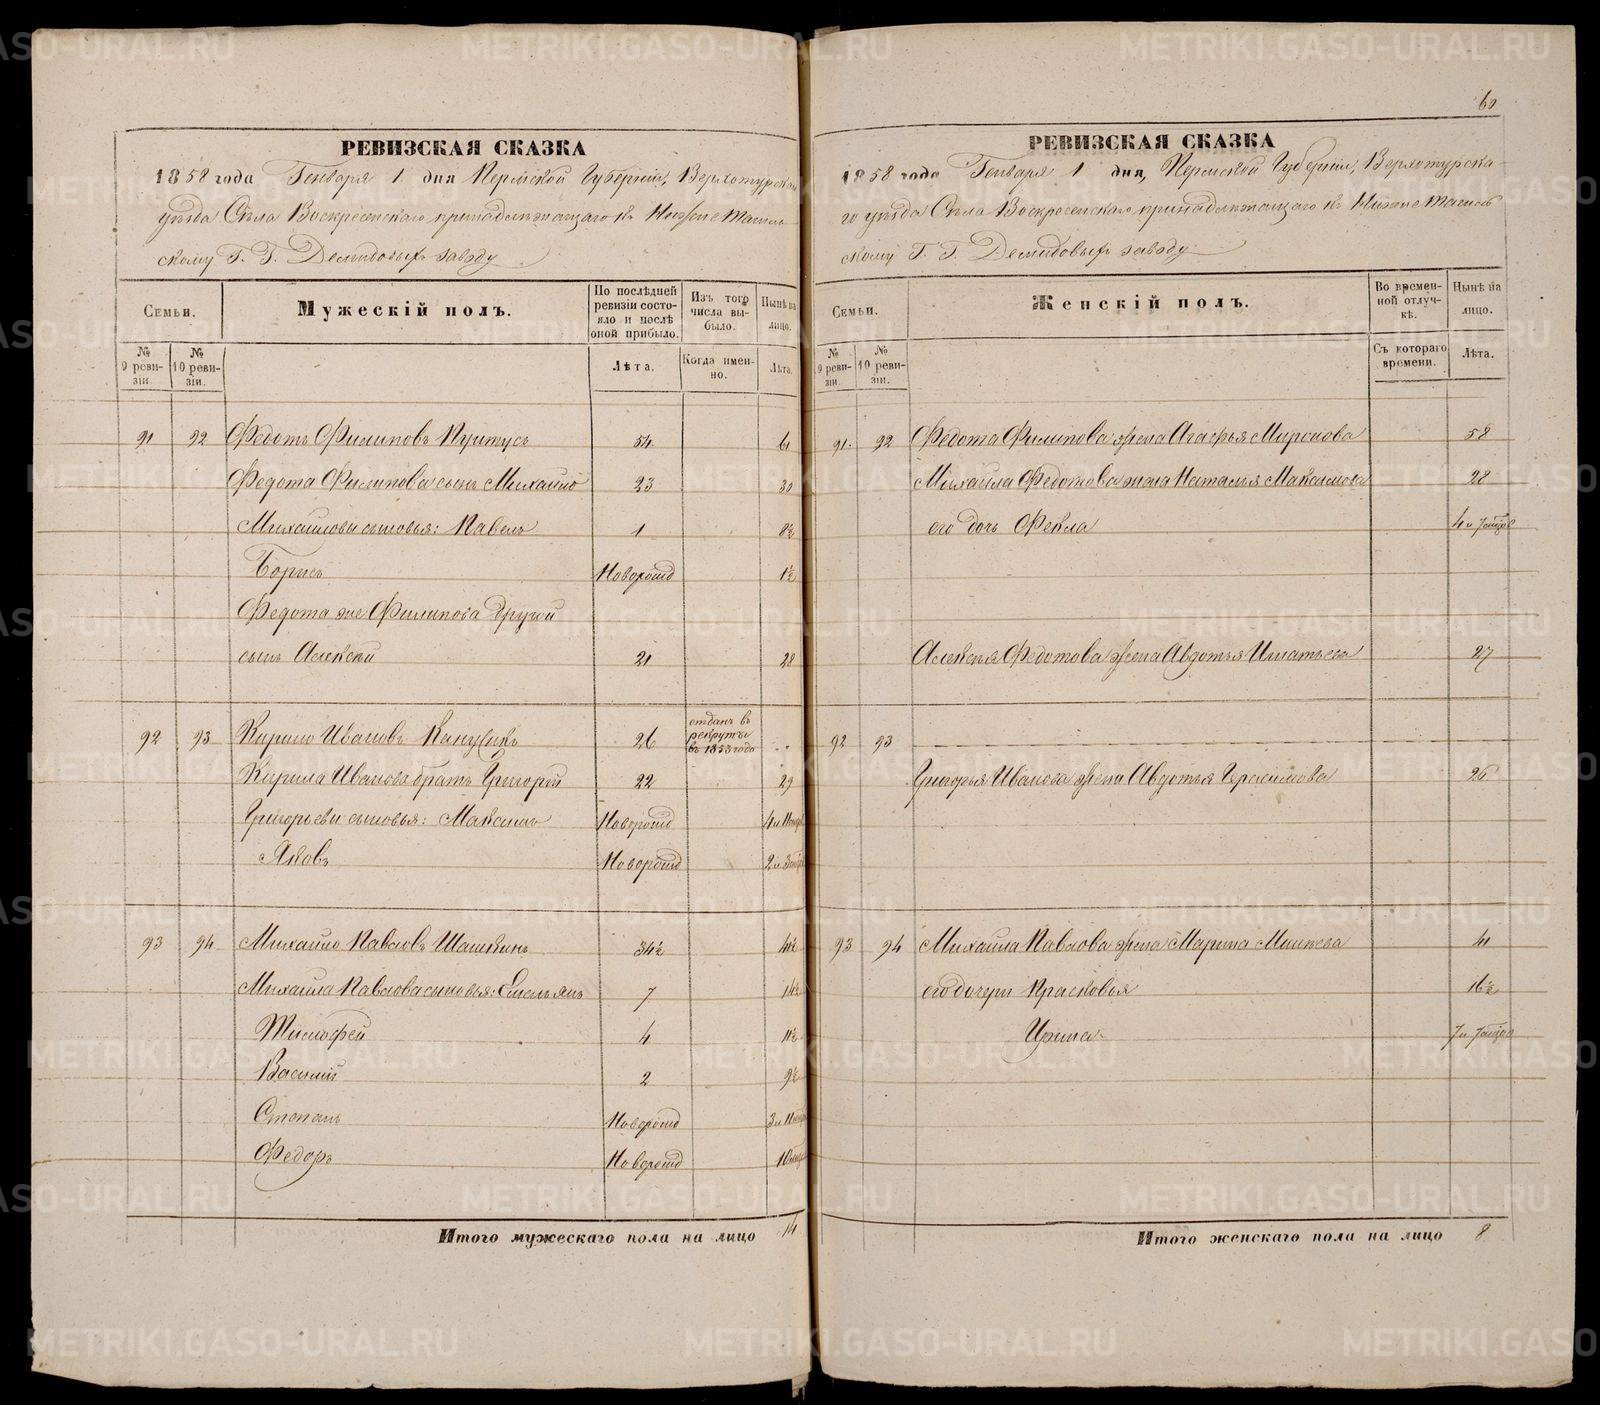 60
РЕВИЗСКАЯ СКАЗКА
1858 года Генваря 1 дня Пермской Губернiи, Верхотурскаго
уѣзда Села Воскресенскаго принадлежащаго къ Нижне Тагиль-
скому Г. Г. Демидовыхъ заводу
Семьи.
№ 9 ревизiи.
№ 10 ревизiи.
Мужескiй полъ.
По послѣдней ревизiи состояло и послѣ оной прибыло.
Лѣта.
Изъ того числа выбыло.
Когда именно.
Нынѣ на лицо.
Лѣта.
91 92 Федотъ Филиповъ 54 61
Федота Филипова сынъ Михайло 23 30
Михайловы сыновья: Павелъ 1 8½
Борисъ Новорожд 1½
Федота же Филипова другой
сынъ Алексѣй 21 28
92 93 Кирило Ивановъ 26 отданъ въ рекруты въ 1853 года
Кирила Иванова братъ Григорей 22 29
Григорьевы сыновья: Максимъ Новорожд
Яковъ Новорожд
93 94 Михайло Павловъ Шашкинъ 34½ 41½
Михаила Павлова сыновья: Емельянъ 7 14½
Тимофей 4 11½
Василiй 2 9½
Степанъ Новорожд
Федоръ Новорожд
Итого мужескаго пола на лицо 14
РЕВИЗСКАЯ СКАЗКА
1858 года Генваря 1 дня, Пермской Губернiи, Верхотурска-
го уѣзда Села Воскресенскаго принадлежащаго къ Нижне Тагиль
скому Г. Г. Демидовыхъ заводу
Семьи.
№ 9 ревизiи.
№ 10 ревизiи.
Женскiй полъ.
Во временной отлучкѣ.
Съ котораго времени.
Нынѣ на лицо.
Лѣта.
91. 92 Федота Филипова жена Агафья Миронова 58
Михайла Федотова жена Наталья Максимова 28
его дочь Фекла
Алексѣя Федотова жена Авдотья Игнатьева 27
92 93
Григорья Иванова жена Авдотья Герасимова 26
93 94 Михаила Павлова жена Марина 41
его дочери Прасковья 16½
Ирина
Итого женскаго пола на лицо 8
METRIKI.GASO-URAL.RU